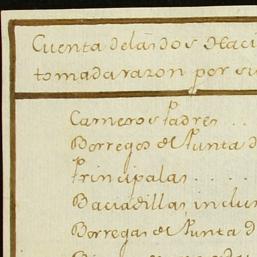 Cuenta de las dos Haci
tomada razon por su
Carneros Padres . .
Borregos de Punta d
Principalas . . . .
Baciadillas inclu
Borregas de Punta d